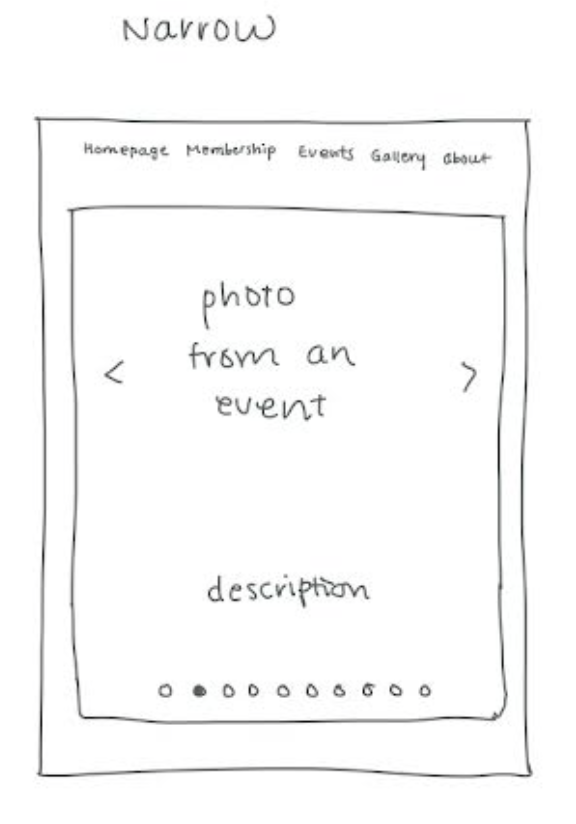 Narrow
Homepage Membership Events Gallery About
photo
< from an >
event
description